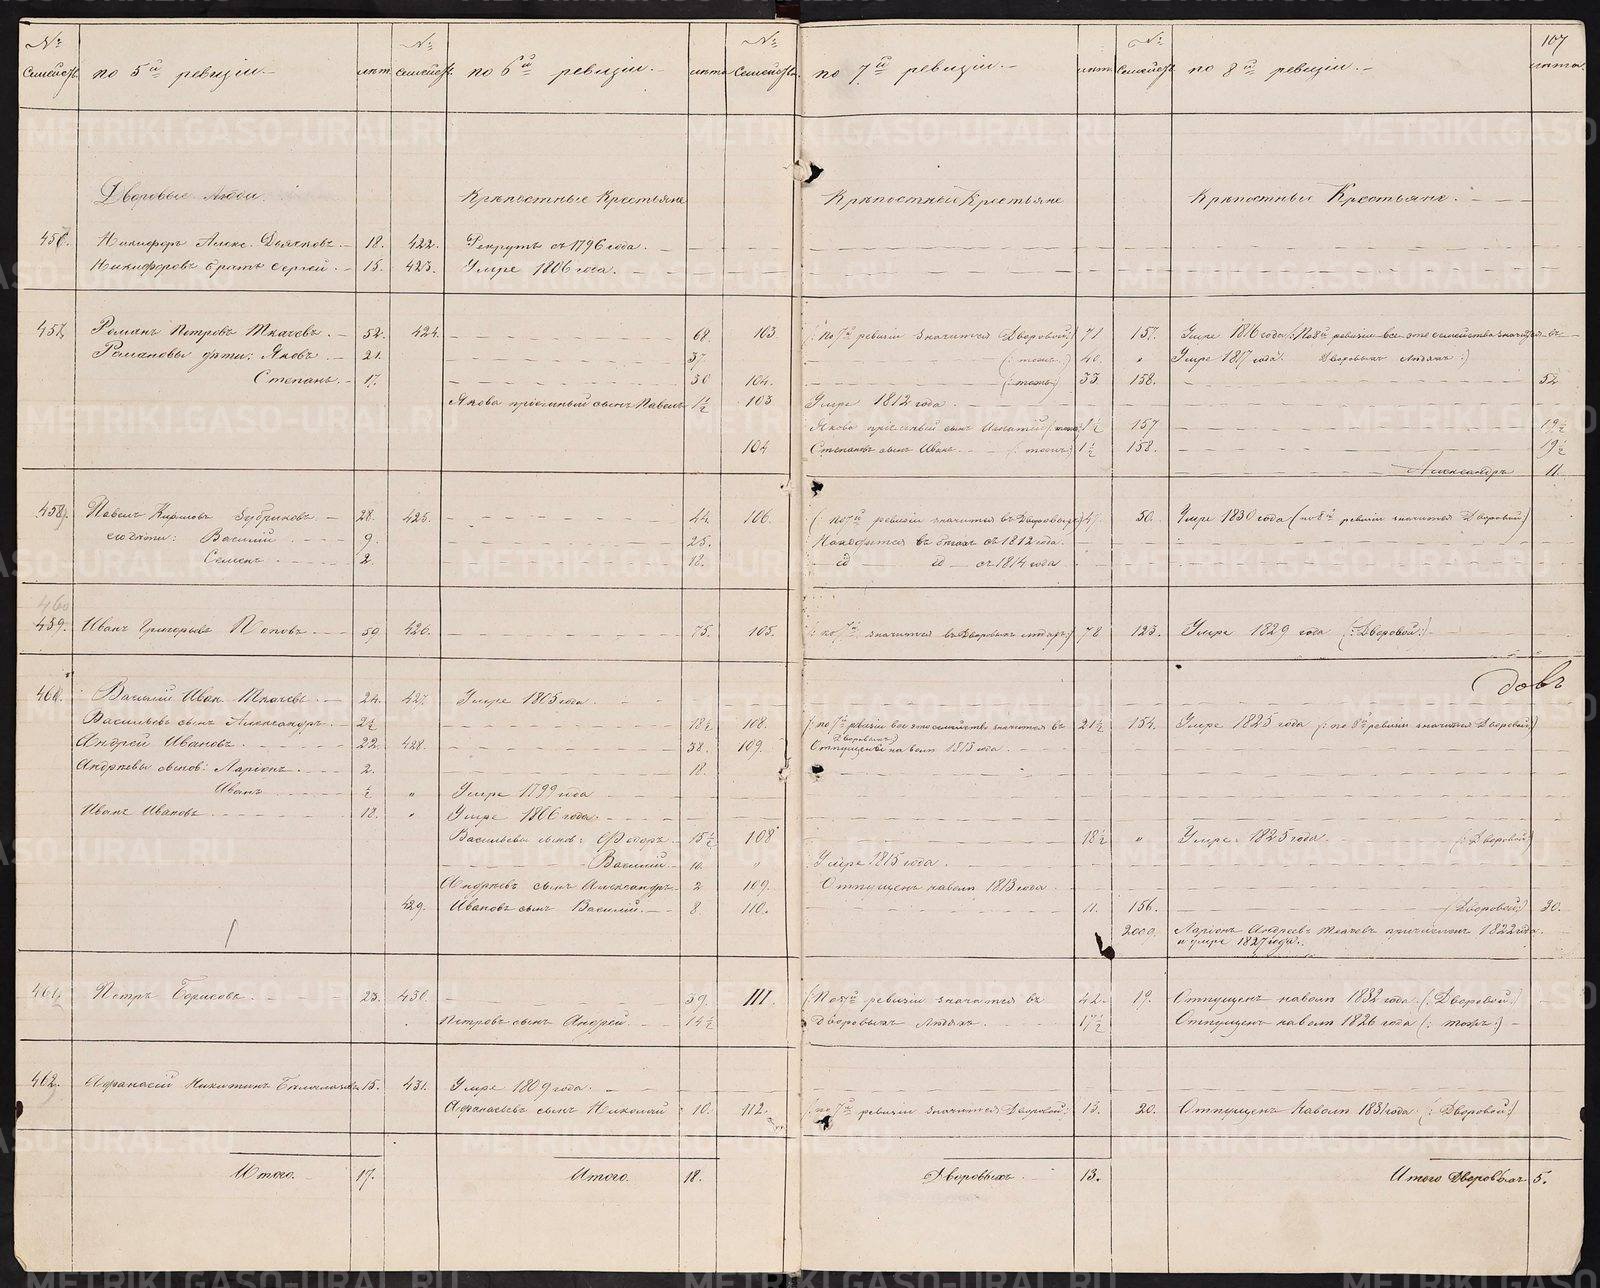 107
№ семействъ по 5й ревизіи. лѣта № семействъ по 6й ревизіи. лѣта № семействъ по 7й ревизіи. лѣта № семействъ по 8й ревизіи. лѣта
Дворовые люди. Крѣпостные Крестьяне Крѣпостные Крестьяне Крѣпостные Крестьяне.
456. Никифоръ Алекс. Дьячковъ 18. 422. Рекрутъ съ 1796 года.
Никифоровъ братъ Сергей 15. 423. Умре 1806 года.
457. Романъ Петровъ Ткачевъ. 52. 424. 68. 103 (: по 7й ревизіи значится Дворовой:) 71 157. Умре 1816 года (: По 8й ревизіи все это семейство значится въ
Романовы дѣти: Яковъ. 21. 37. (: тожъ:) 40. " Умре 1817 года. Дворовыхъ людяхъ:)
Степанъ. 17. 30 104. (: тожъ) 33. 158. 52
Якова пріемный сынъ Павелъ 1½ 103 Умре 1812 года.
Якова пріемный сынъ Игнатей (: тожъ:) 1½ 157 19½
104 Степановъ сынъ Иванъ (: тожъ:) 1½ 158. 19½
Александръ 11.
458. Павелъ Кириловъ Зубриковъ 28. 425. 44. 106. (: по 7й ревизіи значится въ Дворовыхъ:) 47. 50. Умре 1830 года (: по 8й ревизіи значится Дворовой:)
его дѣти: Василій 9. 25. Находится въ бѣгахъ съ 1812 года.
Семенъ 2. 18. съ 1814 года
460
459. Иванъ Григорьевъ Поповъ 59. 426. 75. 105. (: по 7й значится въ Дворовыхъ людяхъ:) 78 123. Умре 1829 года (: Дворовой:)
довъ
460. Василій Иван. Ткачевъ 24. 427. Умре 1805 года.
Васильевъ сынъ Александръ 2½ 18½ 108. (: по 7й ревизіи все это семейство значится въ Дворовыхъ:) 21½ 154. Умре 1825 года (: по 8й ревизіи значится Дворовой:)
Андрей Ивановъ 22. 428. 38. 109. Отпущены на волю 1813 года.
Андреевы сынов: Ларіонъ 2. 18.
Иванъ ½ " Умре 1799 года
Иванъ Ивановъ 18. " Умре 1806 года.
Васильевы сынов: Ѳедоръ 15½ 108 18½ " Умре 1825 года. (: Дворовой)
Василій 10. " Умре 1815 года.
Андреевъ сынъ Александръ 2 109. Отпущенъ на волю 1813 года
429. Ивановъ сынъ Василій 8. 110. 11. 156. (: Дворовой:) 30.
2000. Ларіонъ Андреевъ Ткачевъ причисленъ 1822 года
и умре 1827 года.
461. Петръ Борисовъ 23. 430. 39. 111. (: По 7й ревизіи значатся въ 42. 19. Отпущенъ на волю 1832 года (: Дворовой:)
Петровъ сынъ Андрей 14½ Дворовыхъ Людяхъ. 17½ Отпущенъ на волю 1826 года (: тожъ:)
462. Афанасій Никитинъ 15. 431. Умре 1809 года.
Афанасьевъ сынъ Николай 10. 112. (: по 7й ревизіи значится Дворовой: 13. 20. Отпущенъ на волю 1831 года (: Дворовой:)
Итого. 17. Итого. 18. Дворовыхъ. 13. Итого Дворовыхъ 5.
METRIKI.GASO-URAL.RU